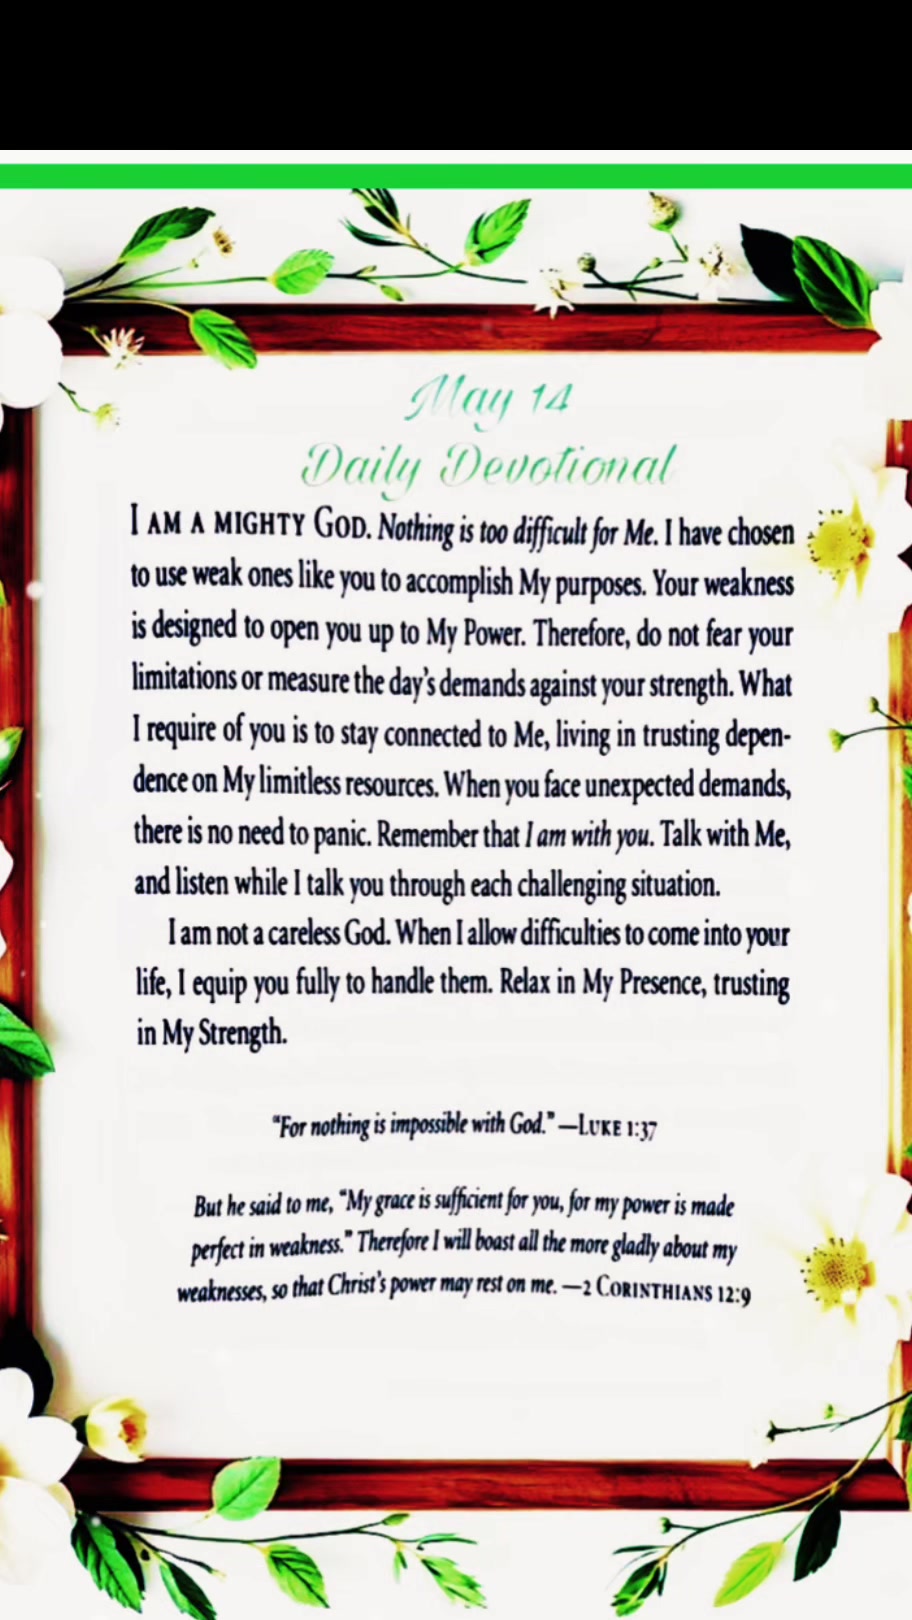 May 14
Daily Devotional
I AM A MIGHTY GOD. Nothing is too difficult for Me. I have chosen
to use weak ones like you to accomplish My purposes. Your weakness
is designed to open you up to My Power. Therefore, do not fear your
limitations or measure the day's demands against your strength. What
I require of you is to stay connected to Me, living in trusting depen-
dence on My limitless resources. When you face unexpected demands,
there is no need to panic. Remember that I am with you. Talk with Me,
and listen while I talk you through each challenging situation.
I am not a careless God. When I allow difficulties to come into your
life, I equip you fully to handle them. Relax in My Presence, trusting
in My Strength.
"For nothing is impossible with God." —LUKE 1:37
But he said to me, "My grace is sufficient for you, for my power is made
perfect in weakness." Therefore I will boast all the more gladly about my
weaknesses, so that Christ's power may rest on me. —2 CORINTHIANS 12:9